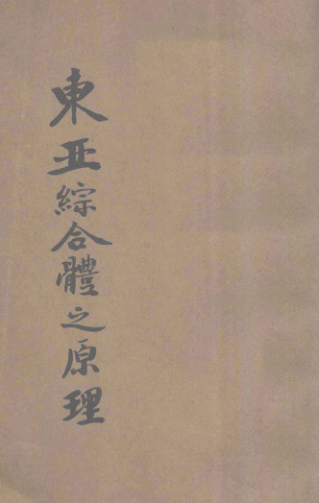 東亚綜合體之原理